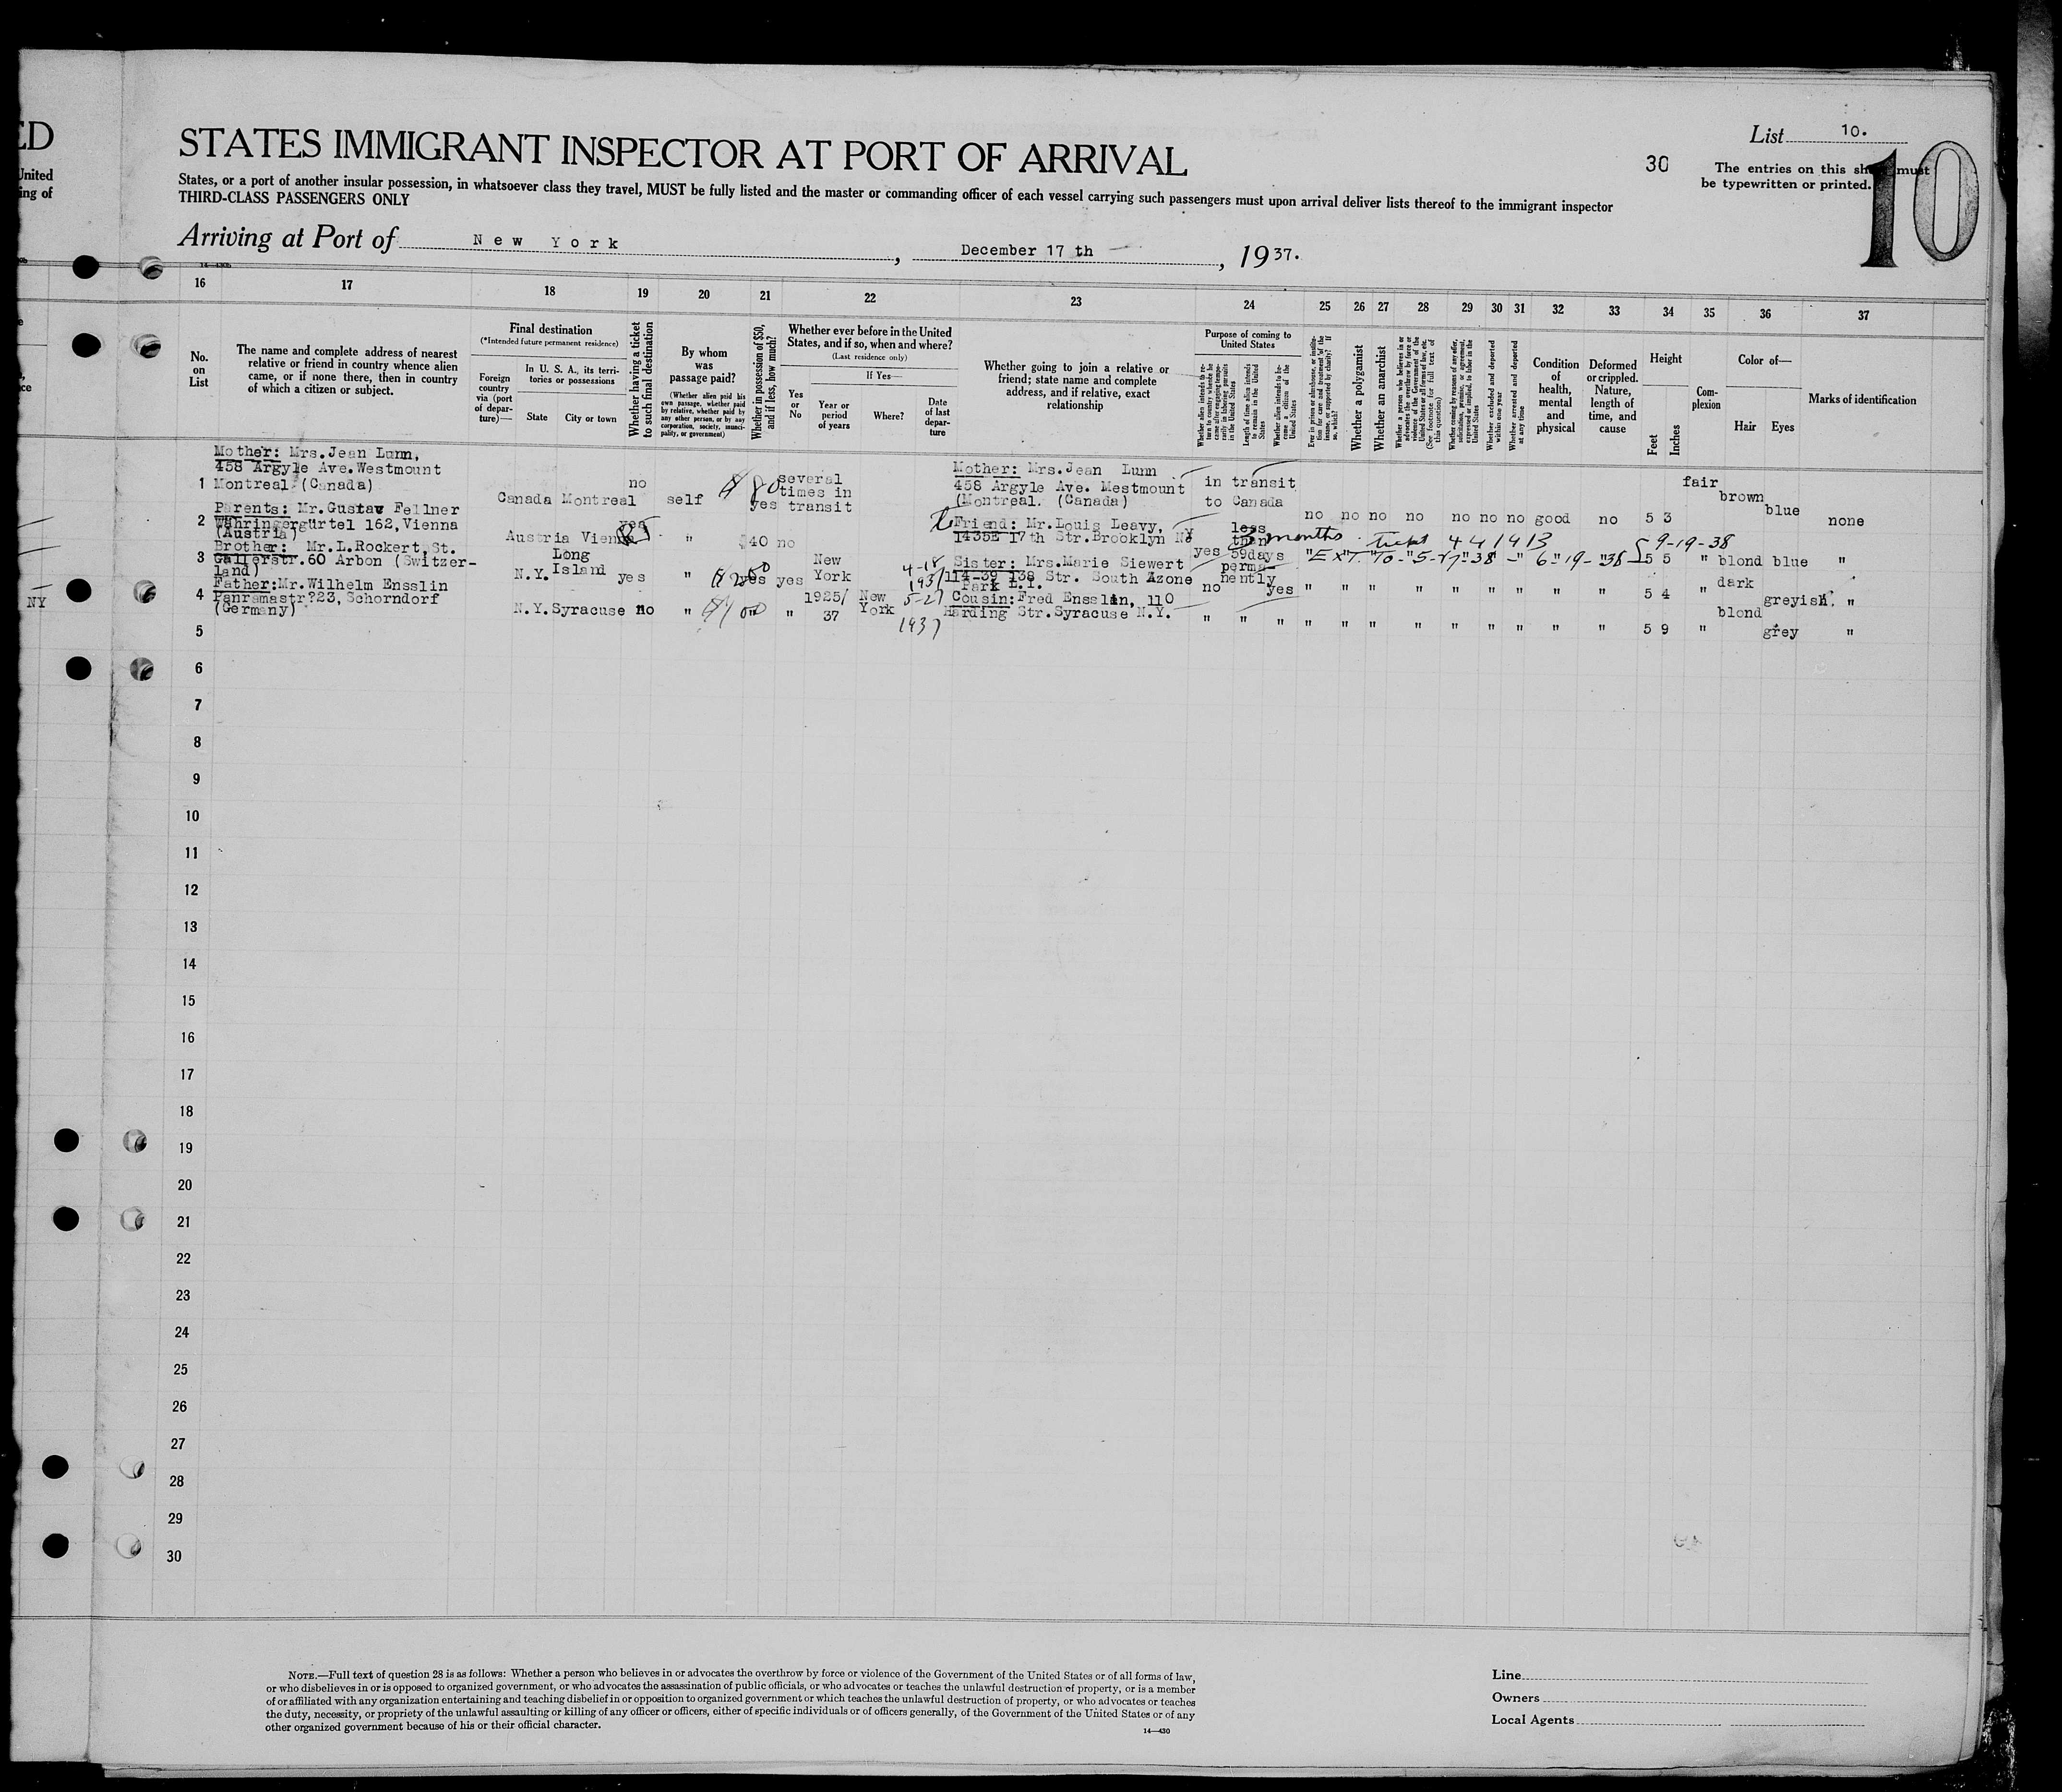 ED
United
ing of
STATES IMMIGRANT INSPECTOR AT PORT OF ARRIVAL
List 10.
30
The entries on this sheet must
be typewritten or printed.
10
States, or a port of another insular possession, in whatsoever class they travel, MUST be fully listed and the master or commanding officer of each vessel carrying such passengers must upon arrival deliver lists thereof to the immigrant inspector
THIRD-CLASS PASSENGERS ONLY
Arriving at Port of New York, December 17 th, 1937.
16 17 18 19 20 21 22 23 24 25 26 27 28 29 30 31 32 33 34 35 36 37
No. on List
The name and complete address of nearest
relative or friend in country whence alien
came, or if none there, then in country
of which a citizen or subject.
Final destination
(*Intended future permanent residence)
Foreign country via (port of departure)—
In U. S. A., its territories or possessions
State City or town
Whether having a ticket to such final destination
By whom was passage paid?
(Whether alien paid his own passage, whether paid by relative, whether paid by any other person, or by any corporation, society, municipality, or government)
Whether in possession of $50, and if less, how much?
Whether ever before in the United States, and if so, when and where?
(Last residence only)
Yes or No
If Yes—
Year or period of years
Where?
Date of last departure
Whether going to join a relative or
friend; state name and complete
address, and if relative, exact
relationship
Purpose of coming to United States
Whether alien intends to return to country whence he came after engaging temporarily in laboring pursuits in the United States
Length of time alien intends to remain in the United States
Whether alien intends to become a citizen of the United States
Ever in prison or almshouse, or institution for care and treatment of the insane, or supported by charity? If so, which?
Whether a polygamist
Whether an anarchist
Whether a person who believes in or advocates the overthrow by force or violence of the Government of the United States or all forms of law, etc. (See footnote for full text of this question)
Whether coming by reasons of any offer, solicitation, promise, or agreement, expressed or implied, to labor in the United States
Whether excluded and deported within one year
Whether arrested and deported at any time
Condition of health, mental and physical
Deformed or crippled. Nature, length of time, and cause
Height
Feet Inches
Complexion
Color of—
Hair Eyes
Marks of identification
1 Mother: Mrs.Jean Lunn,
458 Argyle Ave.Westmount
Montreal (Canada)
Canada Montreal no self $80 yes several times in transit
Mother: Mrs.Jean Lunn
458 Argyle Ave. Mestmount
(Montreal. (Canada)
in transit to Canada
no no no no no no no good no 5 3 fair brown blue none
2 Parents: Mr.Gustav Fellner
Währingergürtel 162,Vienna
(Austria)
Austria Vienna yes " $40 no
Friend: Mr.Louis Leavy,
1435E 17th Str.Brooklyn NY
yes less than 59days
3 months ticket 4 4 1 9 4 13 9-19-38
EXT. To - 5-17-38 - 6-19-38
" 5 5 " blond blue "
3 Brother: Mr.L.Rockert,St.
Gallerstr.60 Arbon (Switzer-
land)
N.Y. Long Island yes " yes yes New York 4-18 1937
Sister: Mrs.Marie Siewert
114-39 138 Str. South Azone
Park L.I.
no permanently yes " " " " " " " " " 5 4 " dark greyish. "
4 Father:Mr.Wilhelm Ensslin
Panramastr?23, Schorndorf
(Germany)
N.Y.Syracuse no " " 1925/37 New York 5-27 1937
Cousin:Fred Ensslin, 110
Harding Str.Syracuse N.Y.
" " " " " " " " " " " " 5 9 " blond grey "
NY
5
6
7
8
9
10
11
12
13
14
15
16
17
18
19
20
21
22
23
24
25
26
27
28
29
30
NOTE.—Full text of question 28 is as follows: Whether a person who believes in or advocates the overthrow by force or violence of the Government of the United States or of all forms of law,
or who disbelieves in or is opposed to organized government, or who advocates the assassination of public officials, or who advocates or teaches the unlawful destruction of property, or is a member
of or affiliated with any organization entertaining and teaching disbelief in or opposition to organized government or which teaches the unlawful destruction of property, or who advocates or teaches
the duty, necessity, or propriety of the unlawful assaulting or killing of any officer or officers, either of specific individuals or of officers generally, of the Government of the United States or of any
other organized government because of his or their official character.
14—430
Line
Owners
Local Agents